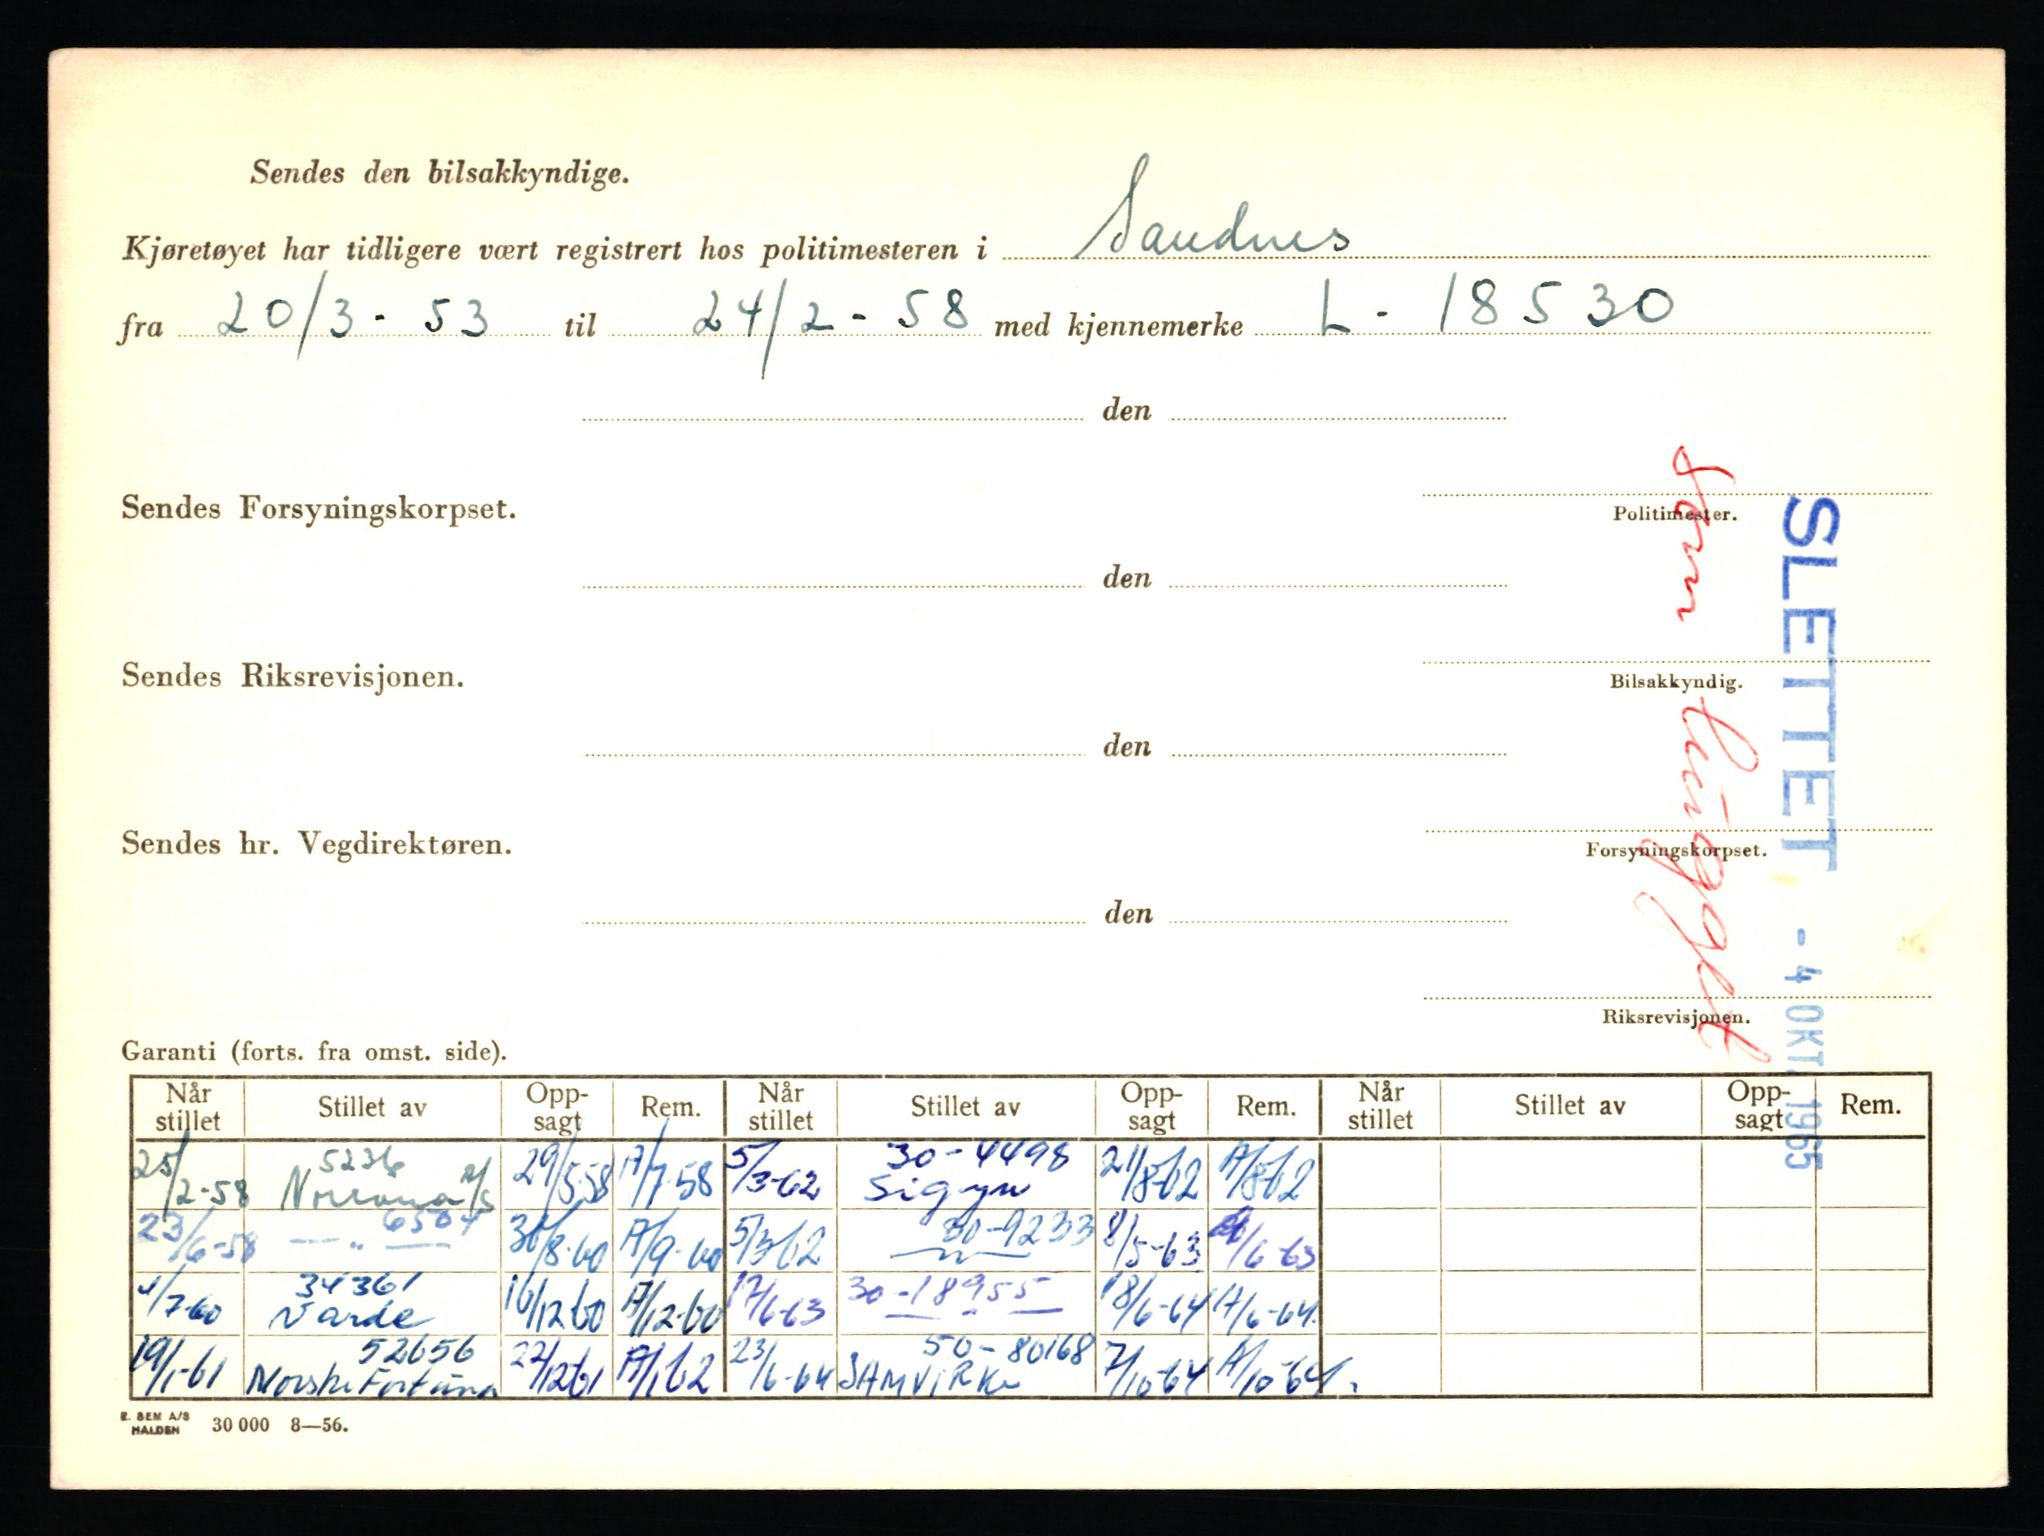 Sendes den bilsakkyndige.
Kjøretøyet har tidligere vært registrert hos politimesteren i Sandnes
fra 20/3 - 53 til 24/2 - 58 med kjennemerke L - 18530
den
Sendes Forsyningskorpset.
Politimester.
den
Sendes Riksrevisjonen.
Bilsakkyndig.
den
Sendes hr. Vegdirektøren.
Forsyningskorpset.
den
Riksrevisjonen.
Som hugget
SLETTET - 4 OKT. 1965
Garanti (forts. fra omst. side).
Når stillet Stillet av Opp-sagt Rem. Når stillet Stillet av Opp-sagt Rem. Når stillet Stillet av Opp-sagt Rem.
25/2-58 5236 Norrøna A/S 29/5-58 A/7-58 5/3-62 30-4498 Sigyn 21/8-62 A/8-62
23/6-58 — „ — 6504 30/8-60 A/9-60 5/3-62 30-9233 8/5-63 /6-63
/7-60 34361 Varde 16/12-60 A/12-60 17/6-63 30-18955 — „ — 18/6-64 A/6-64.
19/1-61 52656 Norske Fortuna 22/12-61 A/1-62 23/6-64 50-80168 SAMVIRKE 7/10-64 A/10-64.
E. SEM A/S
HALDEN 30 000 8—56.